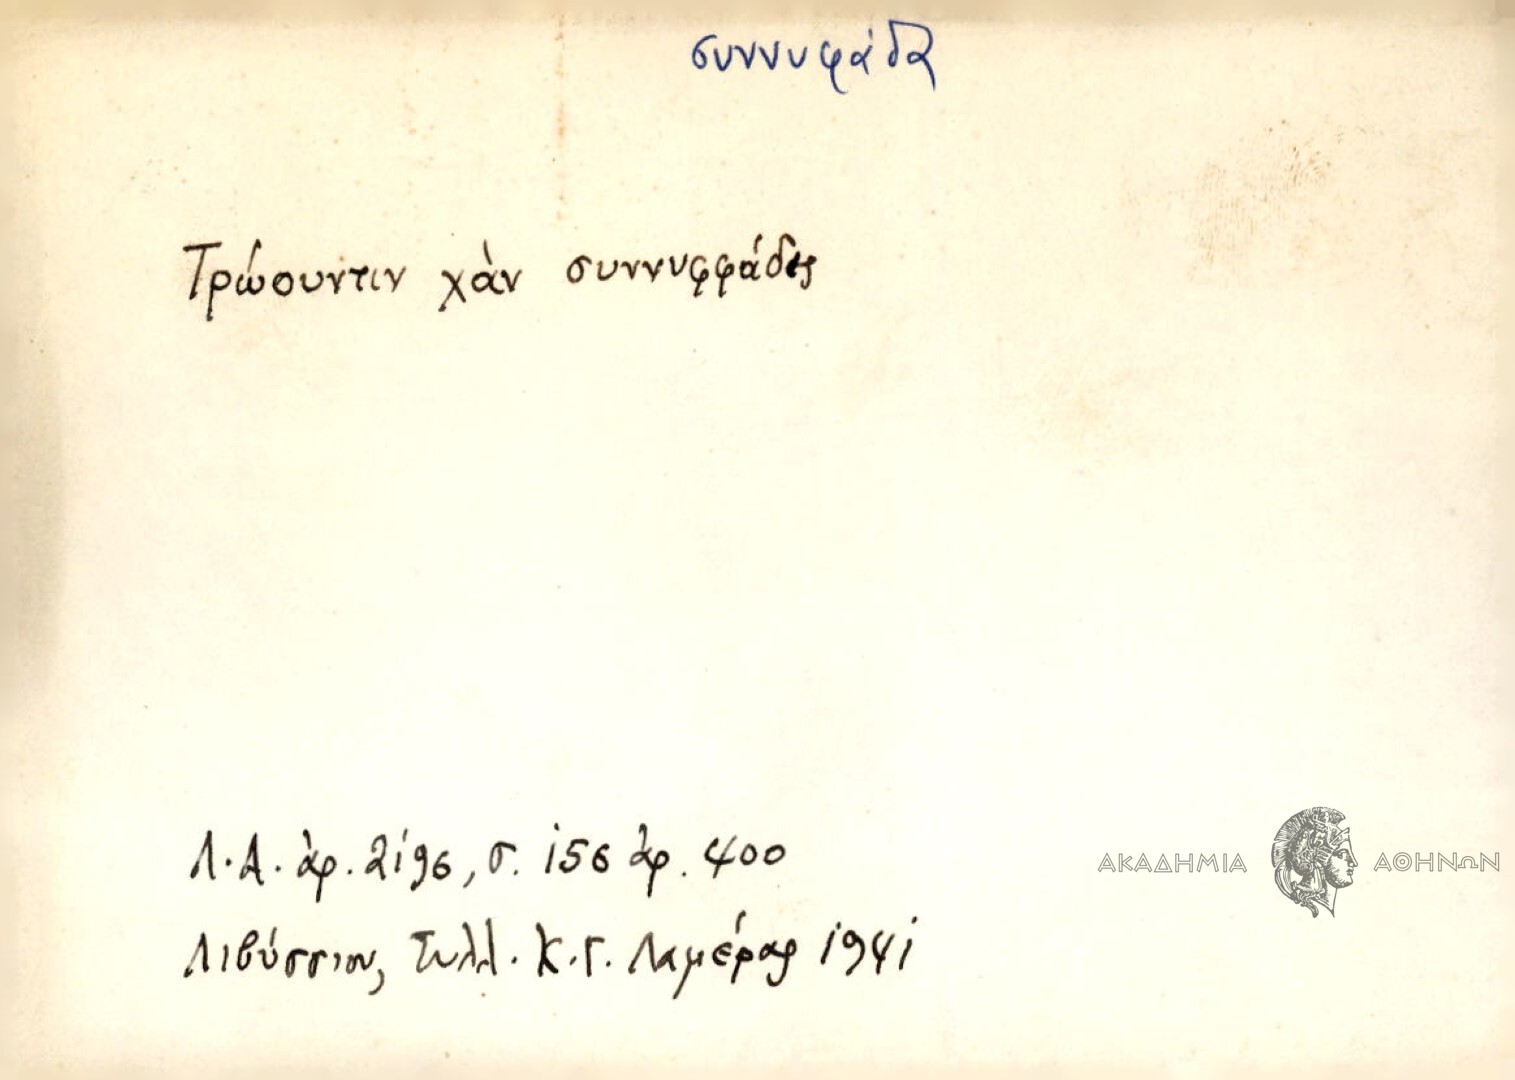 συννυφάδα
Τρώουντιν χὰν συννυφφάδες
Λ.Α. ἀρ. 2196, σ. 156 ἀρ. 400
Λιβύσσιον, Συλλ. Κ.Γ. Λαμέρας 1941
ΑΚΑΔΗΜΙΑ ΑΘΗΝΩΝ